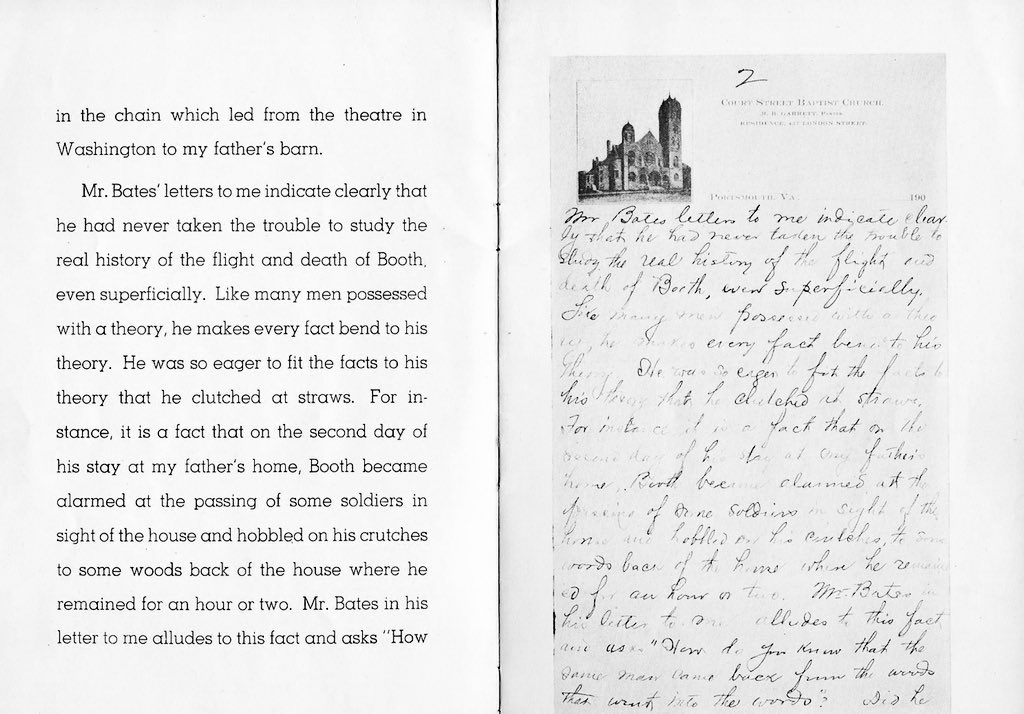 in the chain which led from the theatre in
Washington to my father's barn.
Mr. Bates' letters to me indicate clearly that
he had never taken the trouble to study the
real history of the flight and death of Booth,
even superficially. Like many men possessed
with a theory, he makes every fact bend to his
theory. He was so eager to fit the facts to his
theory that he clutched at straws. For in-
stance, it is a fact that on the second day of
his stay at my father's home, Booth became
alarmed at the passing of some soldiers in
sight of the house and hobbled on his crutches
to some woods back of the house where he
remained for an hour or two. Mr. Bates in his
letter to me alludes to this fact and asks "How
2
Court Street Baptist Church,
R. B. Garrett, Pastor
Residence, 437 London Street.
Portsmouth, Va. 190
Mr Bates letters to me indicate clear
ly that he had never taken the trouble to
study the real history of the flight and
death of Booth, even superficially.
Like many men possessed with a theo
ry, he makes every fact bend to his
theory. He was so eager to fit the facts to
his theory that he clutched at straws.
For instance, it is a fact that on the
second day of his stay at my father's
home, Booth became alarmed at the
passing of some soldiers in sight of the
house and hobbled on his crutches, to some
woods back of the house where he remain
ed for an hour or two. Mr. Bates in
his letter to me alludes to this fact
and asks "How do you know that the
same man came back from the woods
that went into the woods"? Did he